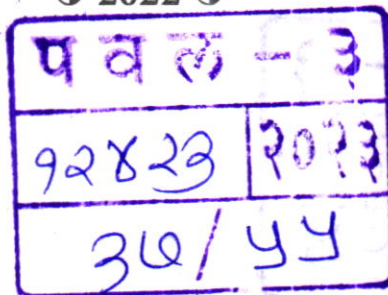 2022
प व ल - ३
१२४२३ २०२३
३७/५५